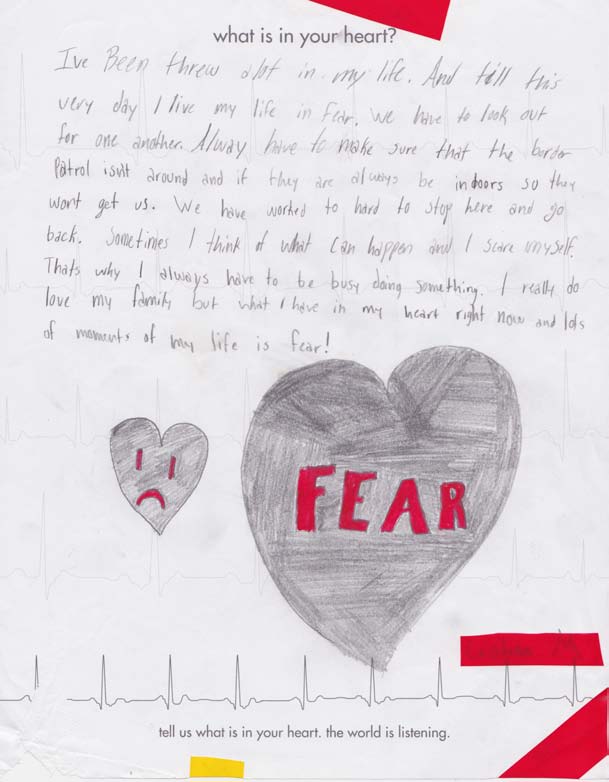 what is in your heart?
Ive Been threw alot in my life. And till this
very day I live my life in fear. We have to look out
for one another. Alway have to make sure that the border
Patrol isnt around and if they are always be indoors so they
wont get us. We have worked to hard to stop here and go
back. Sometimes I think of what can happen and I scare myself.
Thats why I always have to be busy doing something. I really do
love my family but what I have in my heart right now and lots
of moments of my life is fear!
FEAR
tell us what is in your heart. the world is listening.